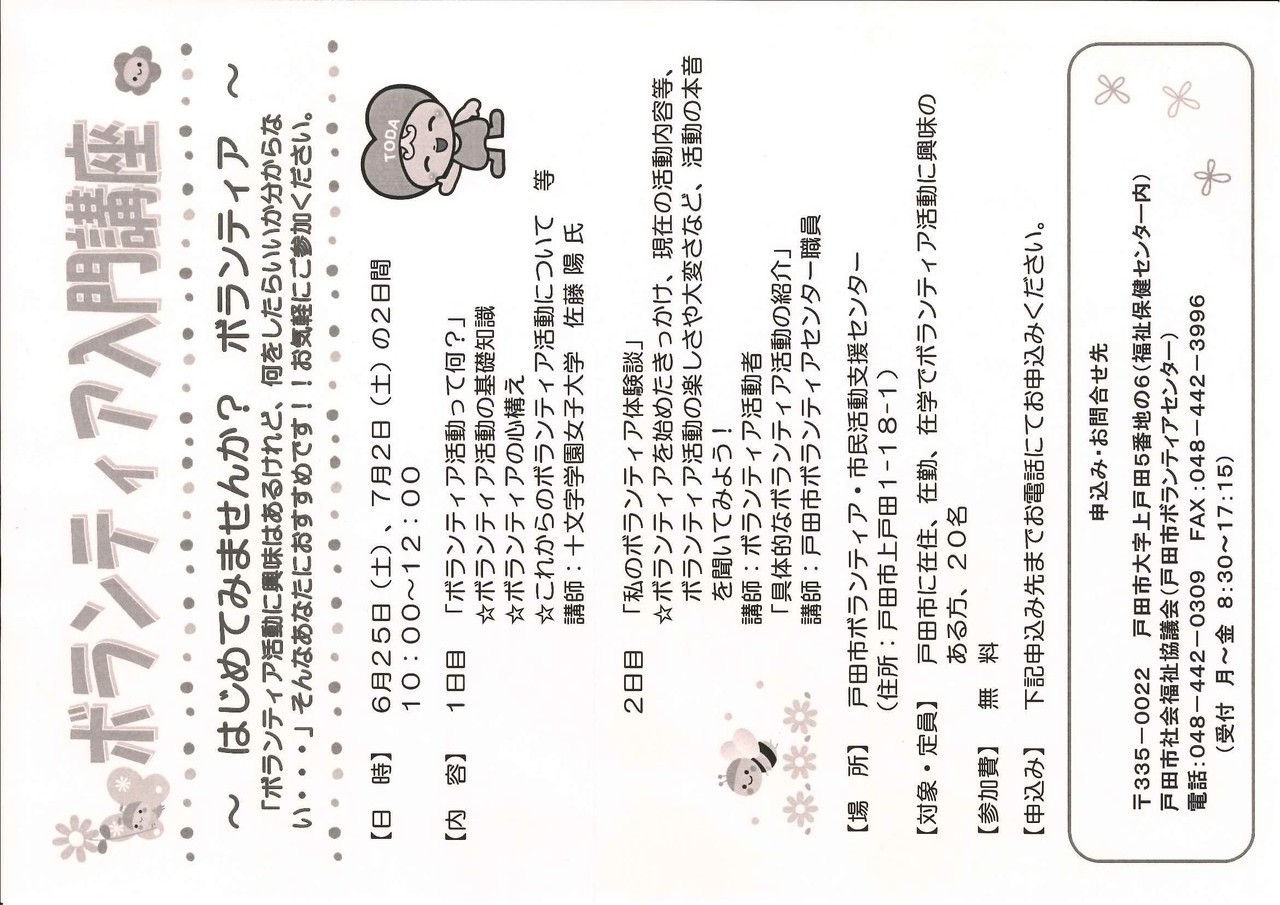 ボランティア入門講座
～　はじめてみませんか？　ボランティア　～
「ボランティア活動に興味はあるけれど、何をしたらいいか分からな
い・・・」そんなあなたにおすすめです！！お気軽にご参加ください。
TODA
【日　時】　６月２５日（土）、７月２日（土）の２日間
１０：００～１２：００
【内　容】　１日目　「ボランティア活動って何？」
☆ボランティア活動の基礎知識
☆ボランティアの心構え
☆これからのボランティア活動について　等
講師：十文字学園女子大学　佐藤 陽 氏
２日目　「私のボランティア体験談」
☆ボランティアを始めたきっかけ、現在の活動内容等、
ボランティア活動の楽しさや大変さなど、活動の本音
を聞いてみよう！
講師：ボランティア活動者
「具体的なボランティア活動の紹介」
講師：戸田市ボランティアセンター職員
【場　所】　戸田市ボランティア・市民活動支援センター
（住所：戸田市上戸田１-１８-１）
【対象・定員】　戸田市に在住、在勤、在学でボランティア活動に興味の
ある方、２０名
【参加費】　無　料
【申込み】　下記申込み先までお電話にてお申込みください。
申込み・お問合せ先
〒335－0022　戸田市大字上戸田5番地の6（福祉保健センター内）
戸田市社会福祉協議会（戸田市ボランティアセンター）
電話：048－442－0309　FAX：048－442－3996
（受付　月～金　8：30～17：15）